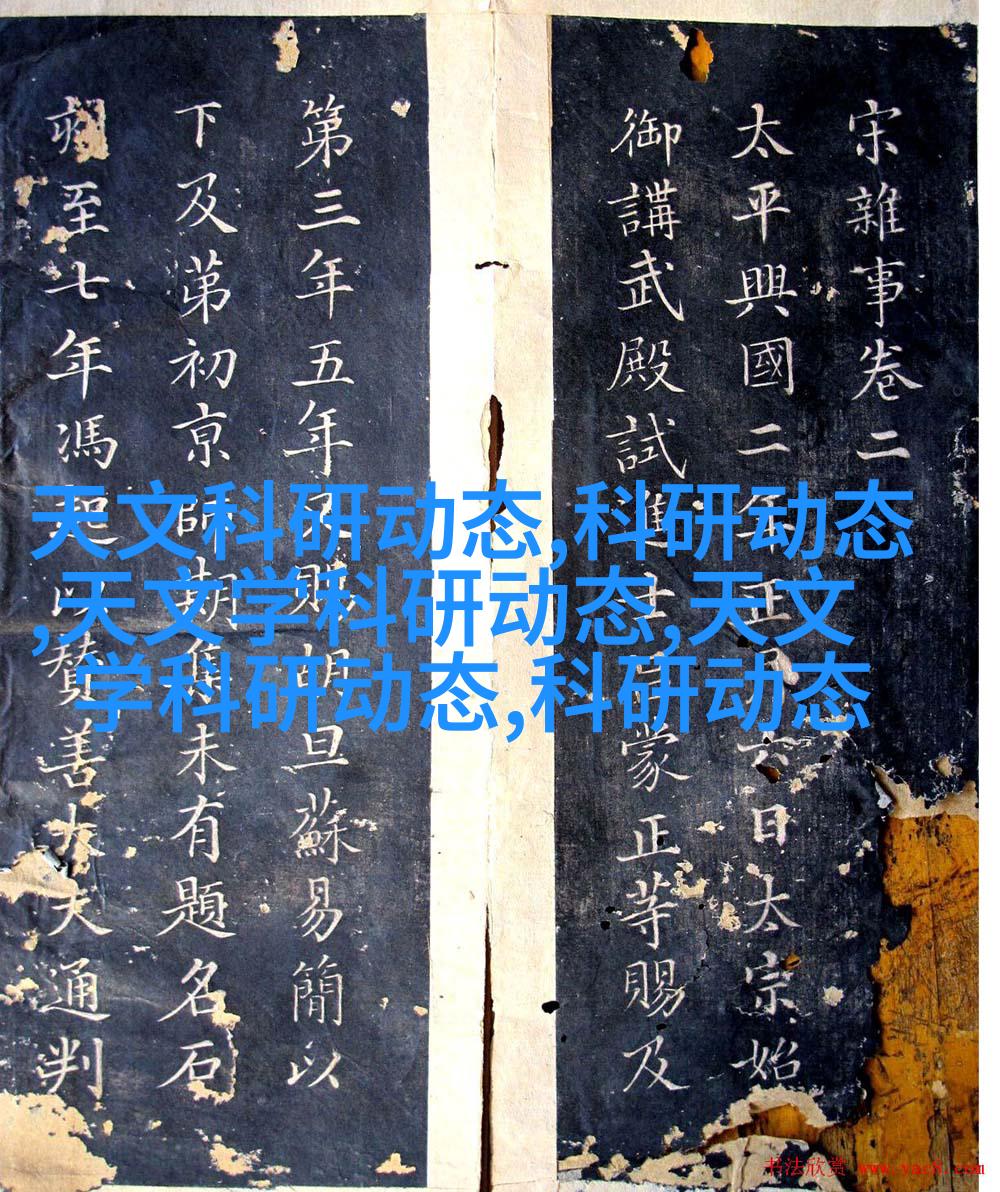 宋雜事卷二
太平興國二年正月六日太宗始
御講武殿試進士吕蒙正䓁賜及
第三年五年又賜胡旦蘇易簡以
下及苐初京師期集未有題名石
刻至七年馮起以賛善大夫通判
天文科研动态,科研动态
,天文学科研动态,天文
学科研动态,科研动态
书法欣赏 www.yac8.com